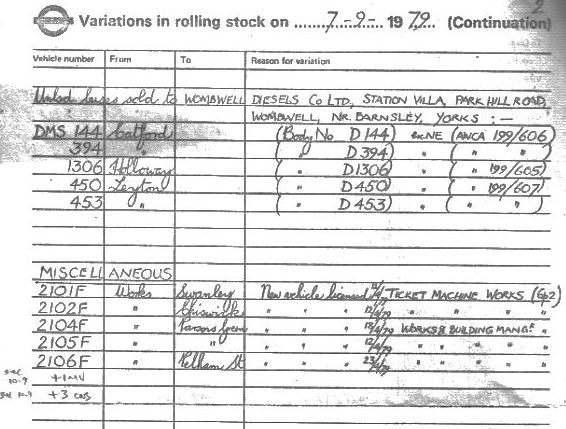 2
Variations in rolling stock on ........7-9-..... 1979. (Continuation)
Vehicle number From To Reason for variation
Unlsd buses sold to WOMBWELL DIESELS CO LTD, STATION VILLA, PARK HILL ROAD,
WOMBWELL, NR. BARNSLEY, YORKS :—
DMS 144 Catford (Body No D 144) (ANCA 199/606)
394 " ( " D 394) " ( " " )
1306 Holloway ( " D1306) " ( " 199/605)
450 Leyton ( " D450) " ( " 199/607)
453 " ( " D453) " ( " " )
MISCELLANEOUS
2101F Works Swanley New vehicle licensed TICKET MACHINE WORKS (Gp2)
2102F " Chiswick " " " 12/4/79 " " " "
2104F " Parsons Green " " " WORKS & BUILDING MANGR "
2105F " " " " " " " " "
2106F " Pelham St " " " " " " "
10-9 +1 MV
+3 cars